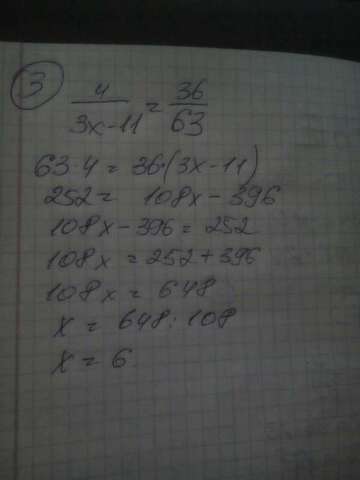 3
4/(3x-11) = 36/63
63·4 = 36·(3x-11)
252 = 108x - 396
108x - 396 = 252
108x = 252 + 396
108x = 648
x = 648 : 108
x = 6